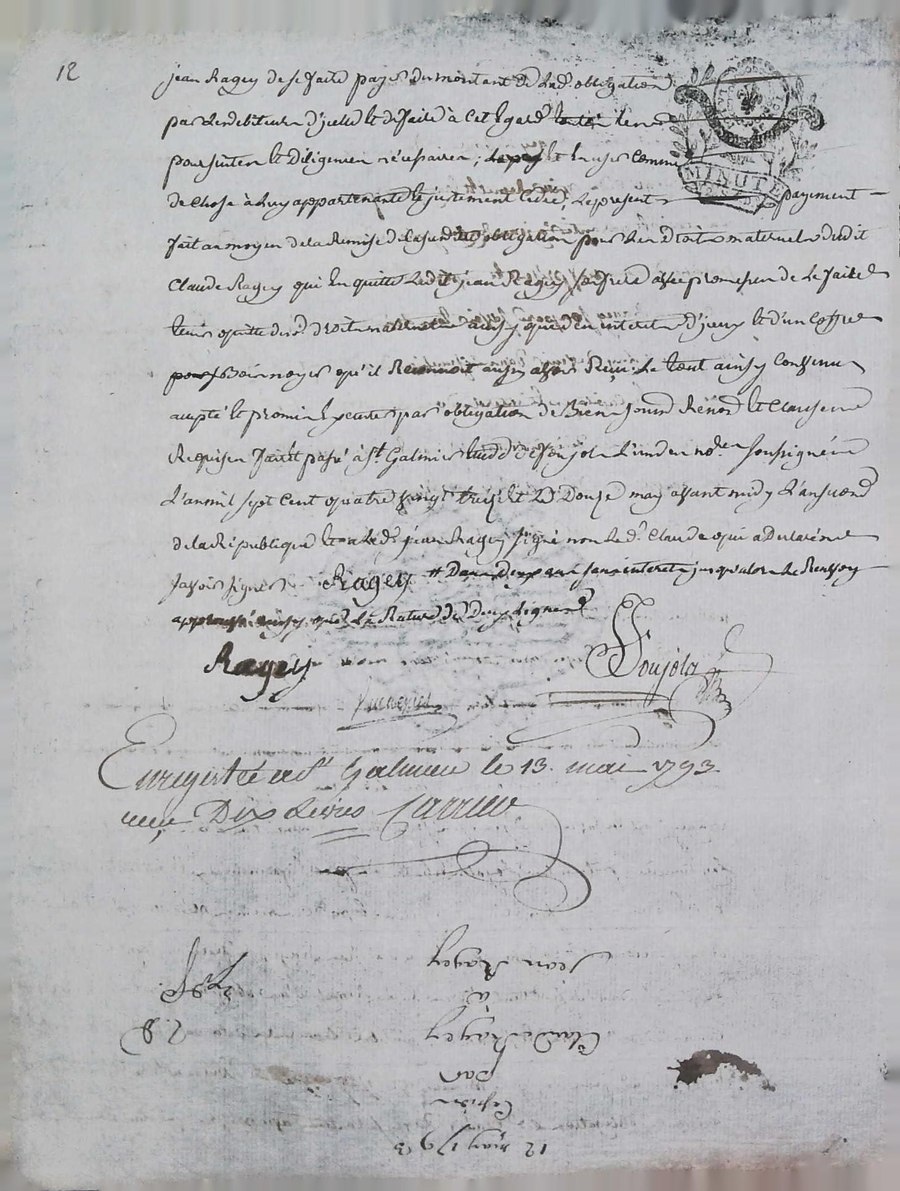 12
jean Ragey de se faire payer du montant de lad. obligation
par les debiteurs d'jcelle et de faire à cet Egard
poursuites et diligences nécessaires, Comme
MINUTE
de Chose à luy appartenante Le present payement
fait au moyen de la Remise de la susditte obligation pour les Droits maternels dudit
Claude Ragey qui En quitte Ledit jean Ragey avec promesse de Le faire
tenir quitte desd. droits maternels ainsy que des interets d'jceux et d'un Coffre
Bois noyer qu'il Reconnoit aussy avoir Reçu. Le tout ainsy Convenu
accepté et promis Executer par obligation de Biens Soumis Renon. et Clauses
Requises fait et passé à St. Galmier Etude de Soujola L'un des nores. soussignés
L'an mil sept Cent quatre vingt treize et Le Douze may avant midy L'an second
de la République et a Led. jean Ragey signé non Led. Claude qui a Declaré ne
savoir signer Ragey # Deux ans sans interet jusqu'alors Le Renvoy
approuvé ainsy que La Rature de Deux Lignes
Ragey
Soujola
Enregistré à St. Galmier le 13. mai 1793.
reçu Dix Livres Carrier
jean Ragey
à
Claude Ragey
12 may 1793